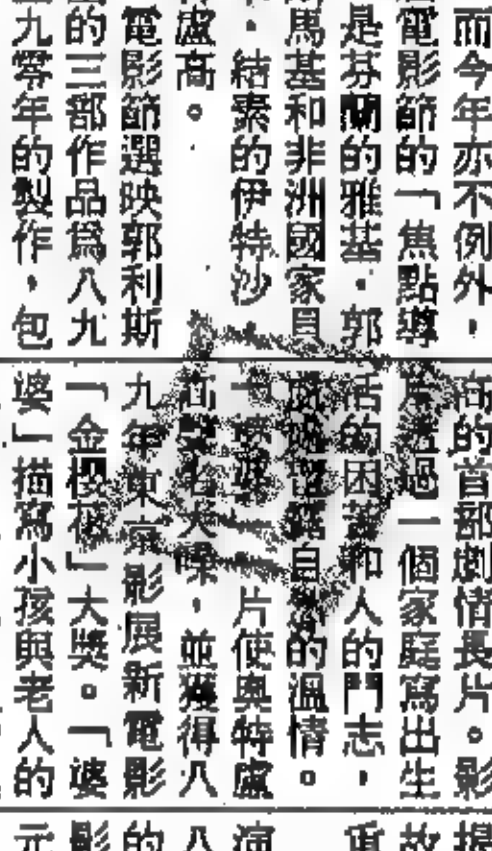 而今年亦不例外，
電影節的「焦點導
是芬蘭的雅基．郭
馬基和非洲國家貝
．結素的伊特沙
盧高。
電影節選映郭利斯
的三部作品為八九
九零年的製作，包
的首部劇情長片。影
過一個家庭寫出生
活的困苦和人的鬥志，
自然的溫情。
一片使奧特盧
名大噪，並獲得八
九年東京影展新電影
「金櫻花」大獎。「婆
婆」描寫小孩與老人的
故
演
八
的
影
元